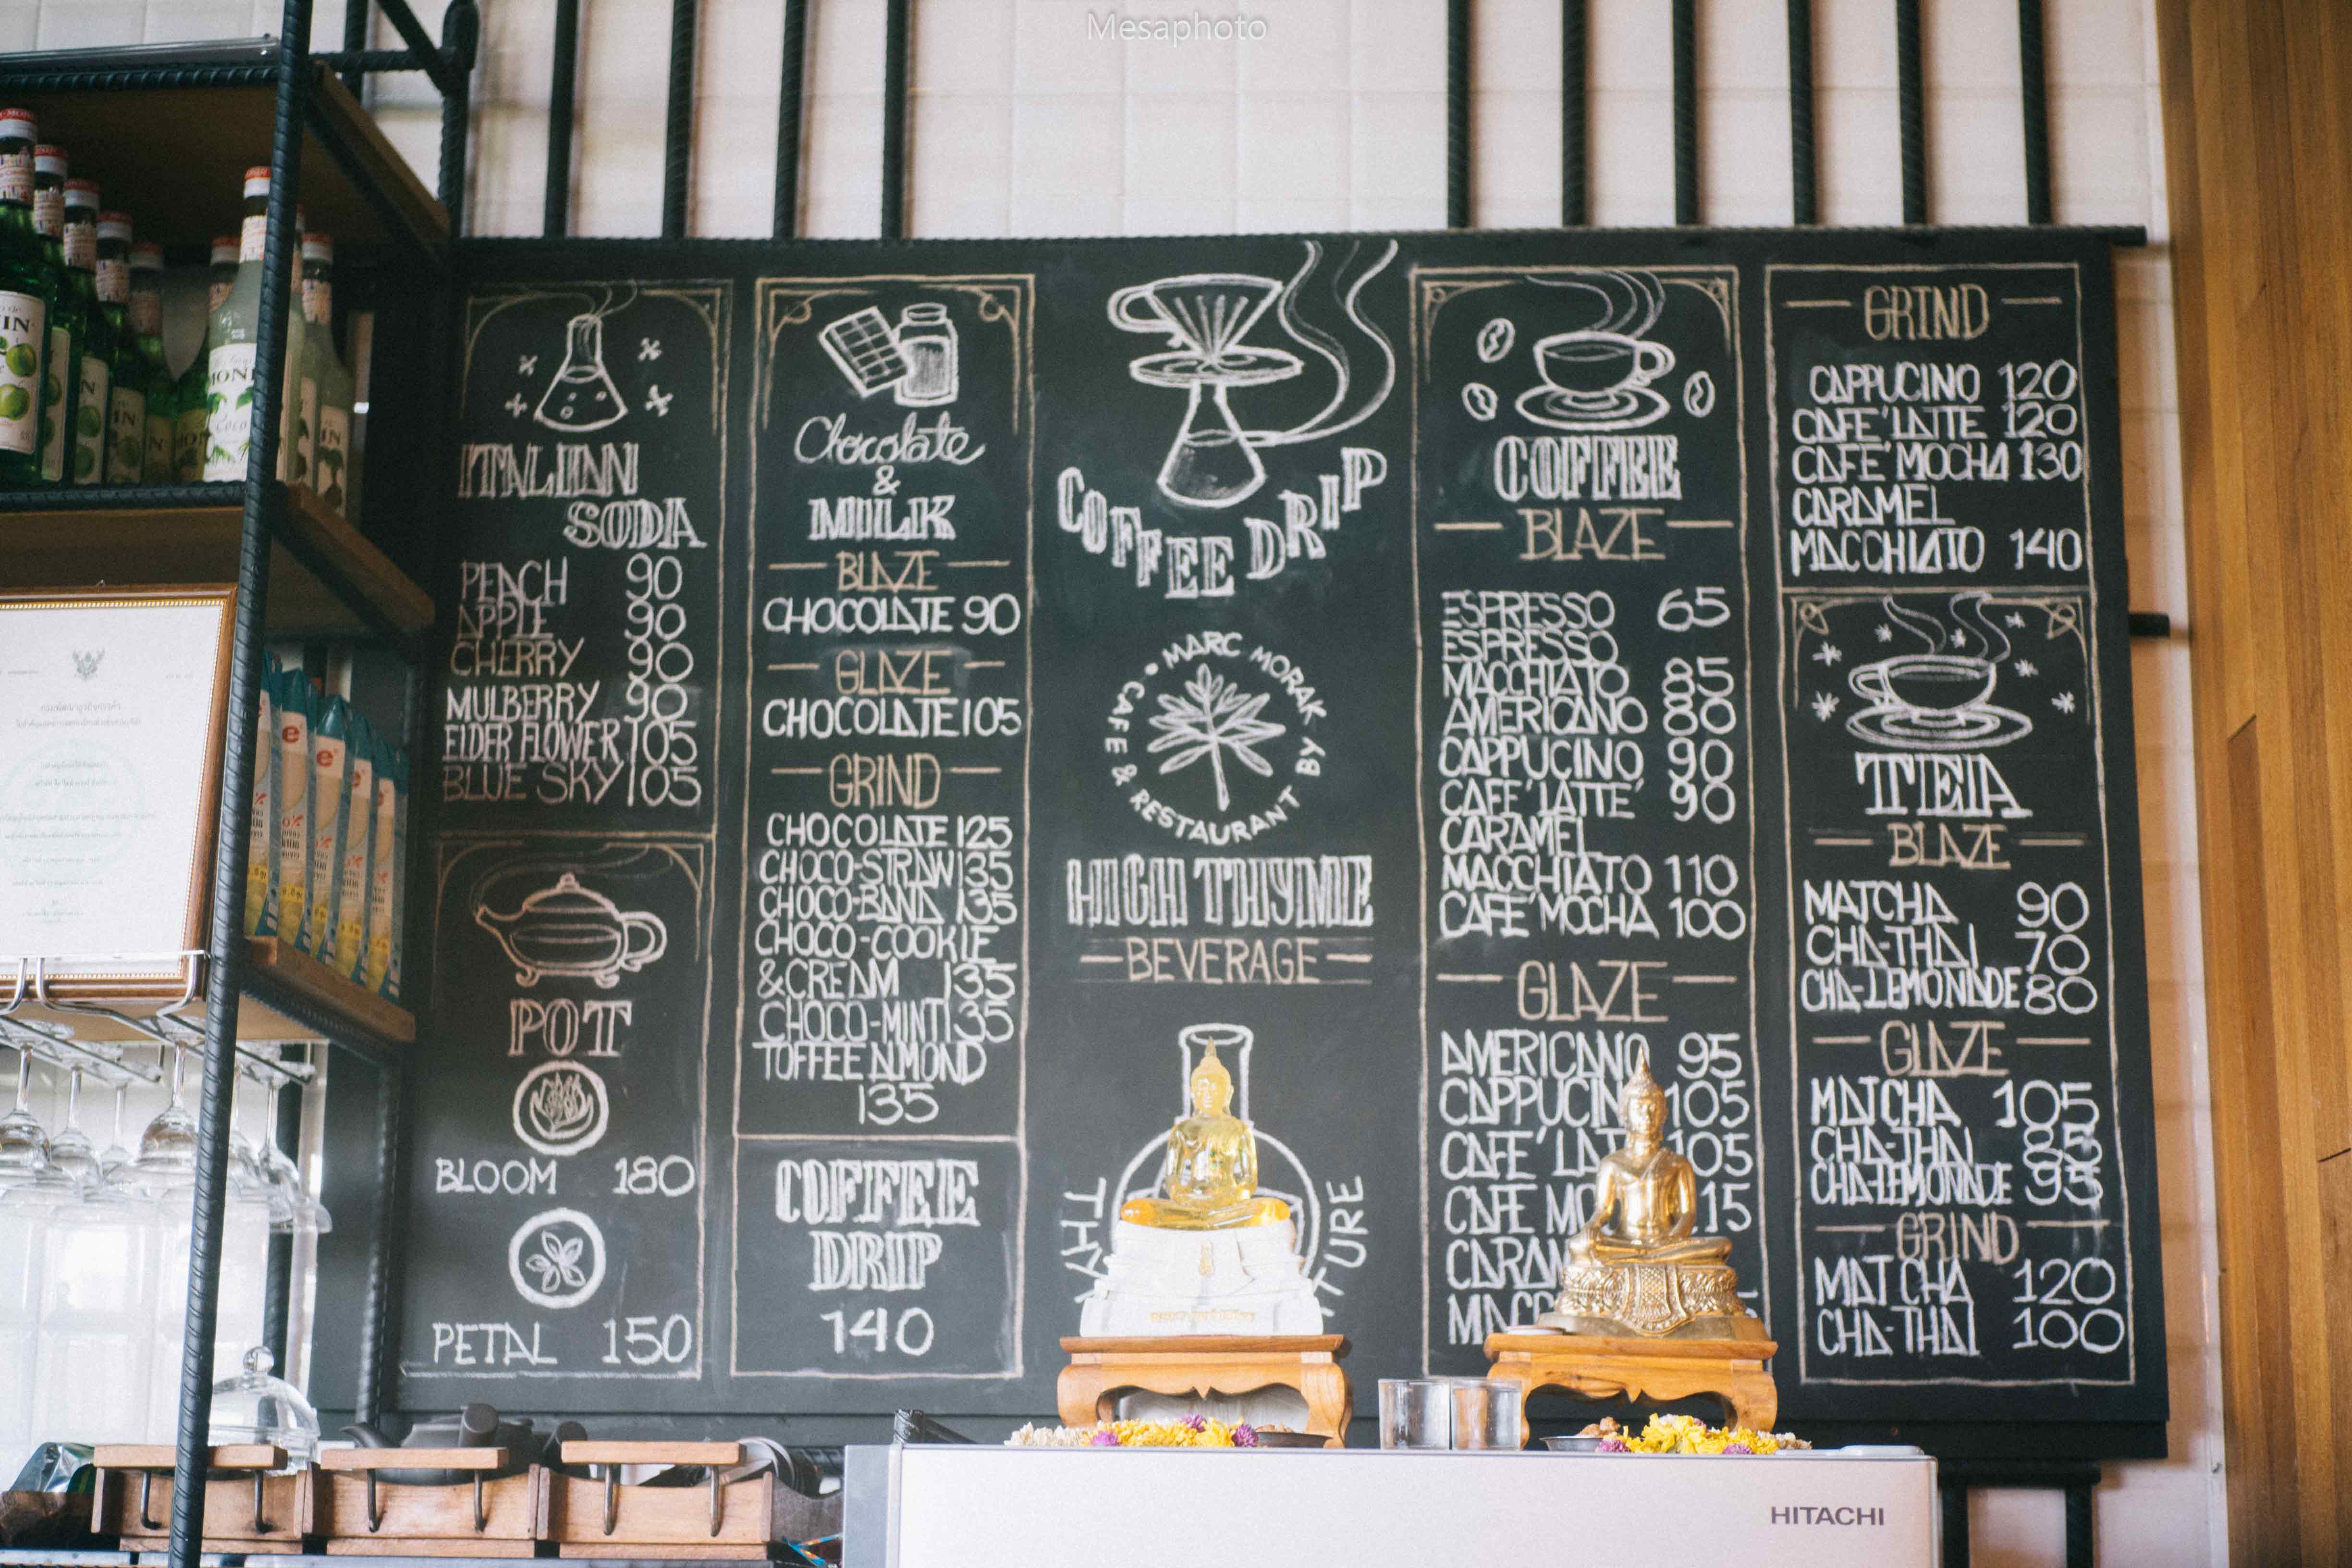 Mesaphoto
ITALIAN
SODA
PEACH 90
APPLE 90
CHERRY 90
MULBERRY 90
ELDER FLOWER 105
BLUE SKY 105
POT
BLOOM 180
PETAL 150
Chocolate
&
MILK
BLAZE
CHOCOLATE 90
GLAZE
CHOCOLATE 105
GRIND
CHOCOLATE 125
CHOCO-STRAW 135
CHOCO-BANA 135
CHOCO-COOKIE
& CREAM 135
CHOCO-MINT 135
TOFFEE ALMOND
135
COFFEE
DRIP
140
COFFEE DRIP
CAFE & RESTAURANT BY MARC MORAK
HIGH THYME
BEVERAGE
COFFEE
BLAZE
ESPRESSO 65
ESPRESSO
MACCHIATO 85
AMERICANO 80
CAPPUCINO 90
CAFE' LATTE' 90
CARAMEL
MACCHIATO 110
CAFE' MOCHA 100
GLAZE
AMERICANO 95
CAPPUCIN 105
CAFE' LAT 105
CAFE MO 15
CARAM
MACC
GRIND
CAPPUCINO 120
CAFE' LATTE 120
CAFE' MOCHA 130
CARAMEL
MACCHIATO 140
TEA
BLAZE
MATCHA 90
CHA-THAI 70
CHA-LEMONADE 80
GLAZE
MATCHA 105
CHA-THAI 85
CHA-LEMONADE 95
GRIND
MATCHA 120
CHA-THAI 100
HITACHI